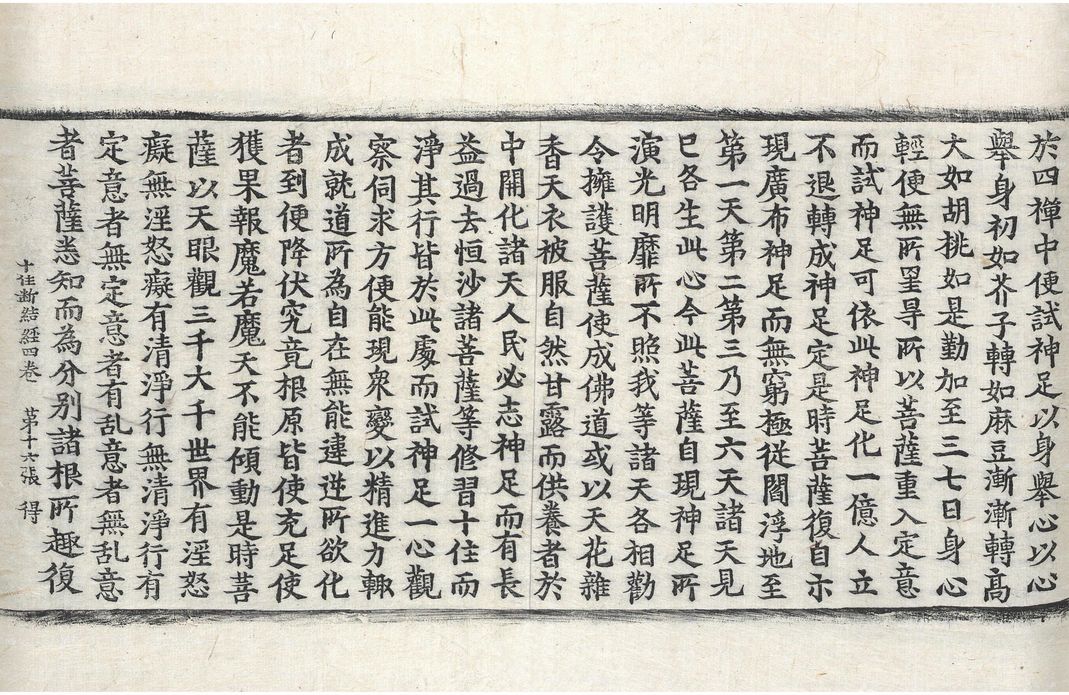 於四禪中便試神足以身舉心以心
舉身初如芥子轉如麻豆漸漸轉髙
大如胡桃如是勤加至三七日身心
輕便無所罣㝵所以菩薩重入定意
而試神足可依此神足化一億人立
不退轉成神足定是時菩薩復自示
現廣布神足而無窮極從閻浮地至
第一天第二第三乃至六天諸天見
已各生此心今此菩薩自現神足所
演光明靡所不照我等諸天各相勸
令擁護菩薩使成佛道或以天花雜
香天衣被服自然甘露而供養者於
中開化諸天人民必志神足而有長
益過去恒沙諸菩薩等修習十住而
淨其行皆於此處而試神足一心觀
察伺求方便能現衆變以精進力輙
成就道所為自在無能違逆所欲化
者到便降伏究竟根原皆使充足使
獲果報魔若魔天不能傾動是時菩
薩以天眼觀三千大千世界有淫怒
癡無淫怒癡有清淨行無清淨行有
定意者無定意者有乱意者無乱意
者菩薩悉知而為分别諸根所趣復
十住断結經四卷 苐十六張 得